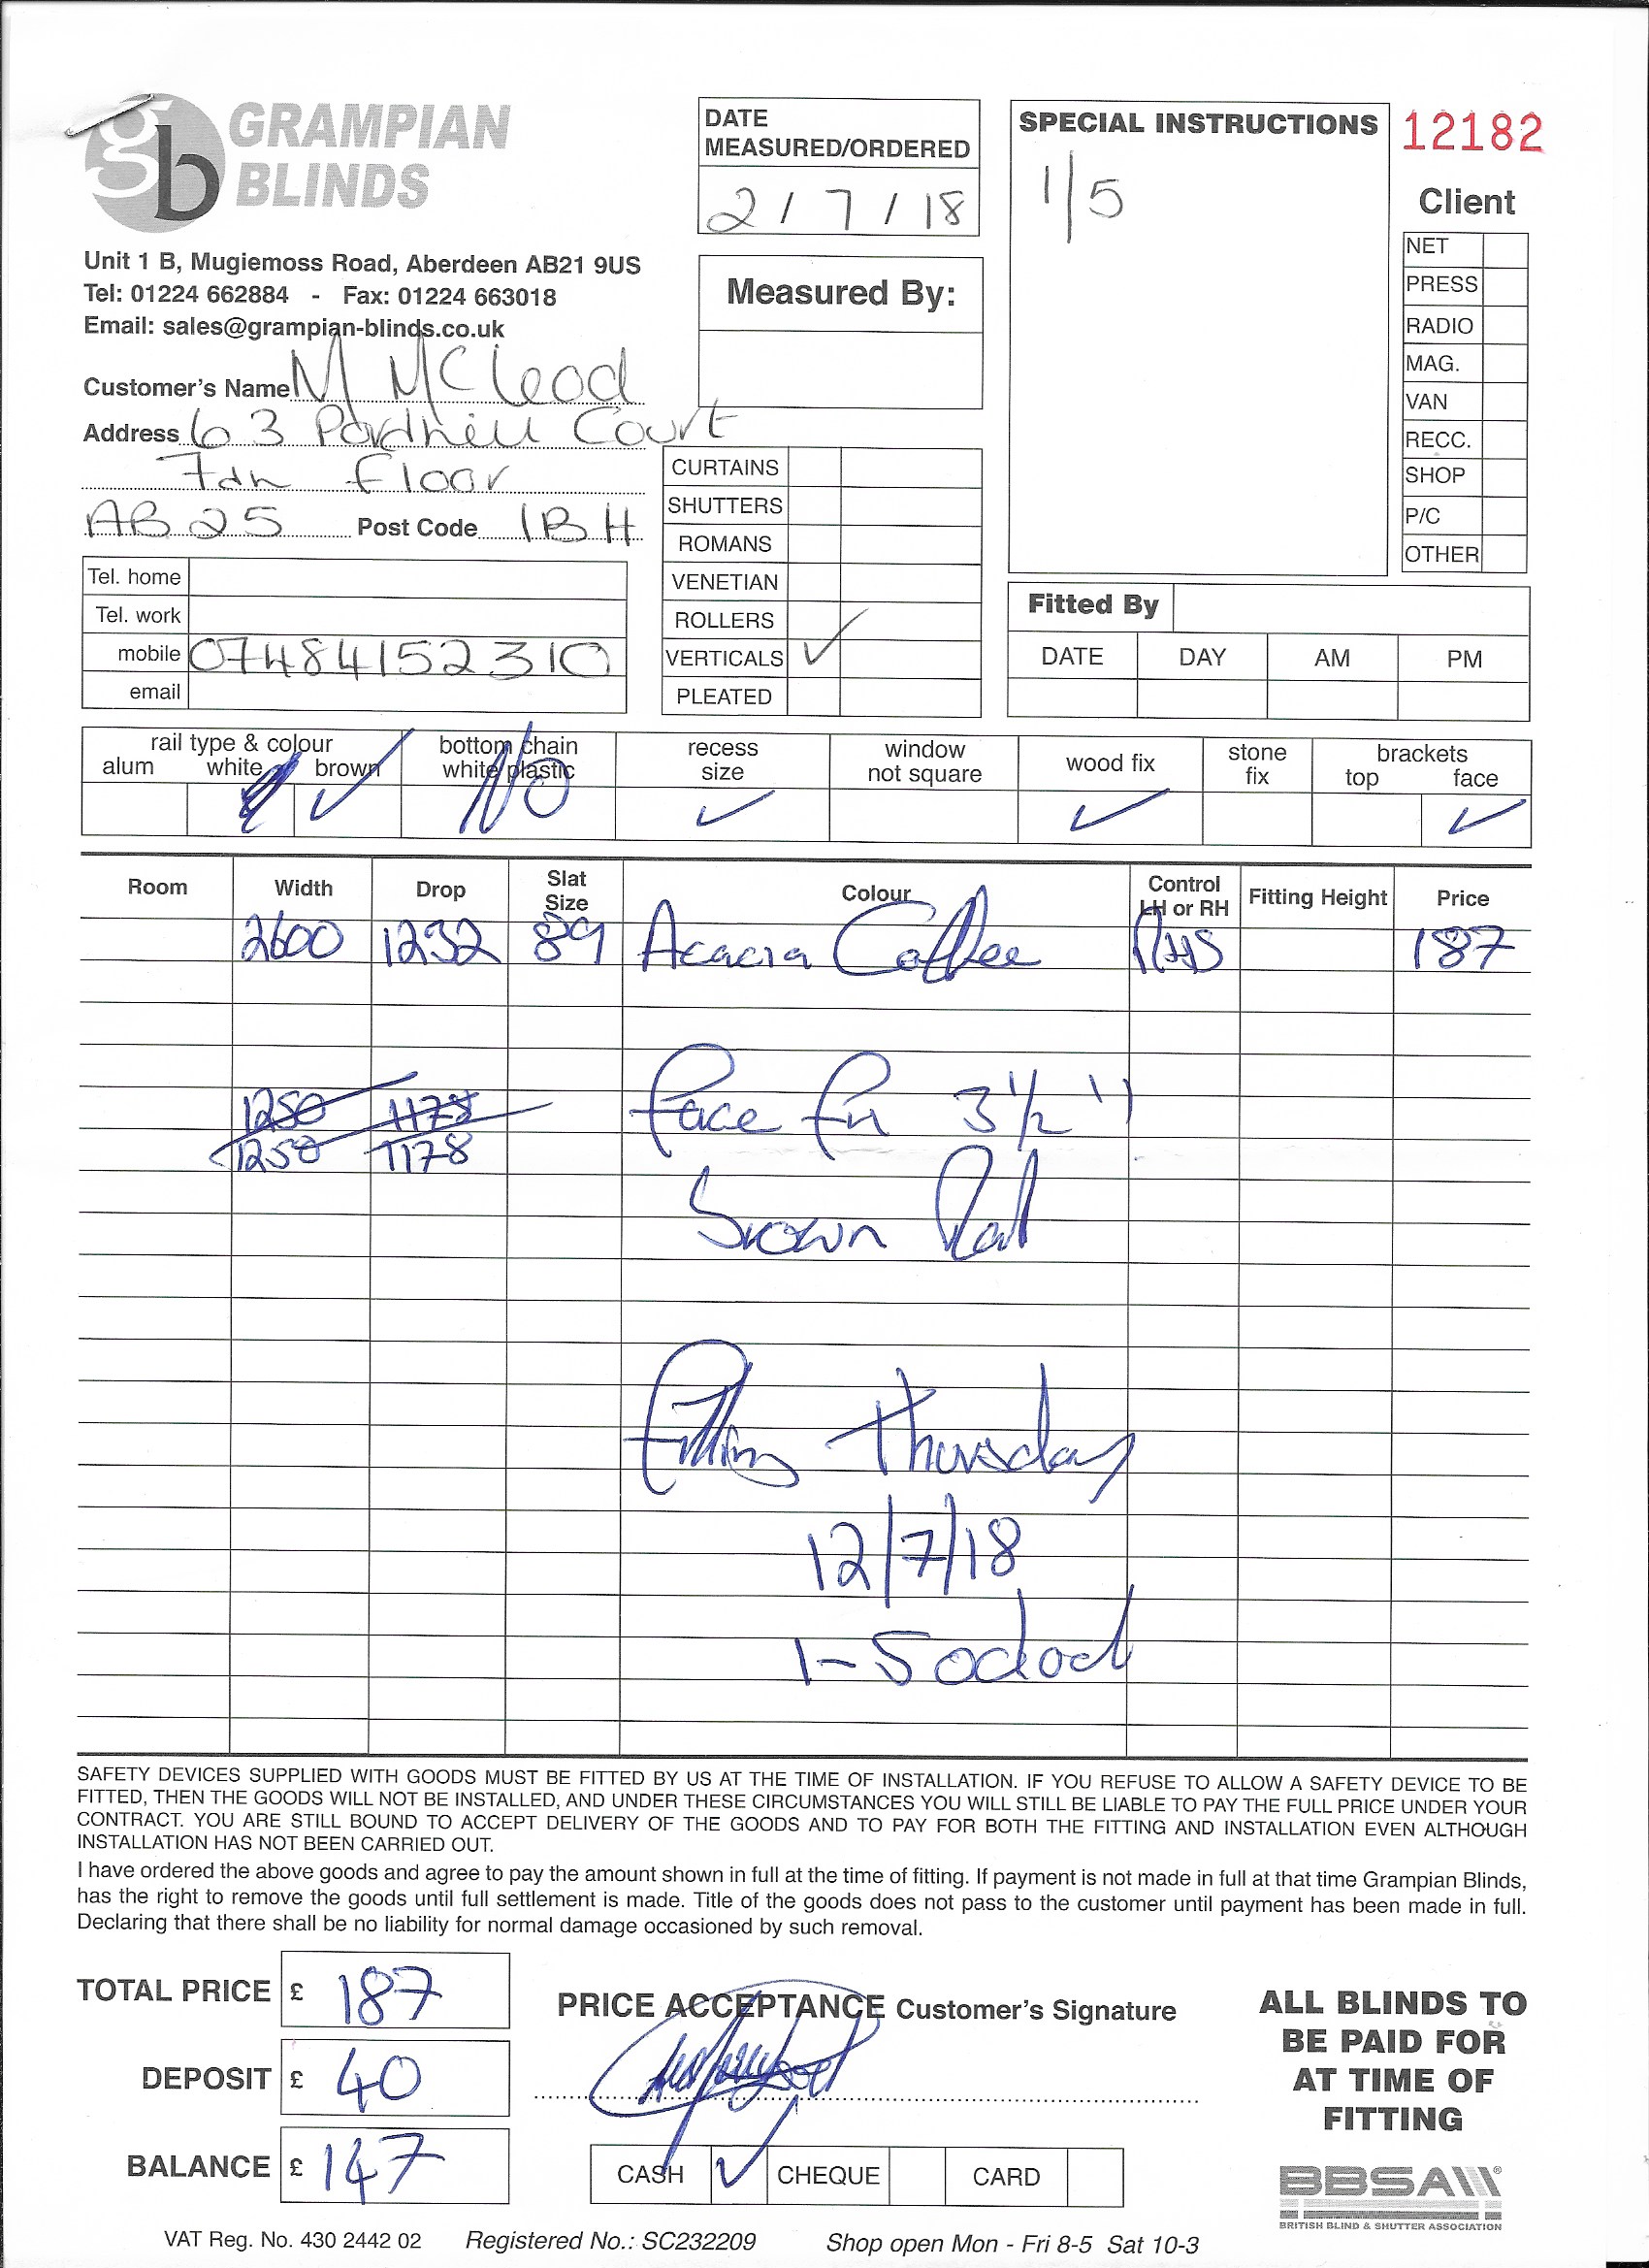 GRAMPIAN
BLINDS
Unit 1 B, Mugiemoss Road, Aberdeen AB21 9US
Tel: 01224 662884 - Fax: 01224 663018
Email: sales@grampian-blinds.co.uk
Customer's Name M McLeod
Address 63 Court
7th Floor
AB25 Post Code 1BH
Tel. home
Tel. work
mobile 07484152310
email
DATE
MEASURED/ORDERED
2/7/18
Measured By:
CURTAINS
SHUTTERS
ROMANS
VENETIAN
ROLLERS
VERTICALS ✓
PLEATED
SPECIAL INSTRUCTIONS
1/5
12182
Client
NET
PRESS
RADIO
MAG.
VAN
RECC.
SHOP
P/C
OTHER
Fitted By
DATE DAY AM PM
rail type & colour
alum white brown ✓
bottom chain
white plastic
NO
recess
size ✓
window
not square
wood fix ✓
stone
fix
brackets
top face ✓
Room Width Drop Slat Size Colour Control LH or RH Fitting Height Price
2600 1232 89 Acacia Coffee RHS 187
1250 1178 Face Fix 3 1/2 "
1250 1178
Brown Rail
Fitting Thursday
12/7/18
1-5 oclock
SAFETY DEVICES SUPPLIED WITH GOODS MUST BE FITTED BY US AT THE TIME OF INSTALLATION. IF YOU REFUSE TO ALLOW A SAFETY DEVICE TO BE
FITTED, THEN THE GOODS WILL NOT BE INSTALLED, AND UNDER THESE CIRCUMSTANCES YOU WILL STILL BE LIABLE TO PAY THE FULL PRICE UNDER YOUR
CONTRACT. YOU ARE STILL BOUND TO ACCEPT DELIVERY OF THE GOODS AND TO PAY FOR BOTH THE FITTING AND INSTALLATION EVEN ALTHOUGH
INSTALLATION HAS NOT BEEN CARRIED OUT.
I have ordered the above goods and agree to pay the amount shown in full at the time of fitting. If payment is not made in full at that time Grampian Blinds,
has the right to remove the goods until full settlement is made. Title of the goods does not pass to the customer until payment has been made in full.
Declaring that there shall be no liability for normal damage occasioned by such removal.
TOTAL PRICE £ 187
DEPOSIT £ 40
BALANCE £ 147
PRICE ACCEPTANCE Customer's Signature
CASH ✓ CHEQUE CARD
ALL BLINDS TO
BE PAID FOR
AT TIME OF
FITTING
BBSA
BRITISH BLIND & SHUTTER ASSOCIATION
VAT Reg. No. 430 2442 02 Registered No.: SC232209 Shop open Mon - Fri 8-5 Sat 10-3